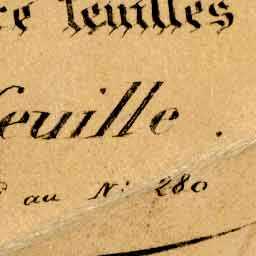 re feuilles
feuille.
au N: 280